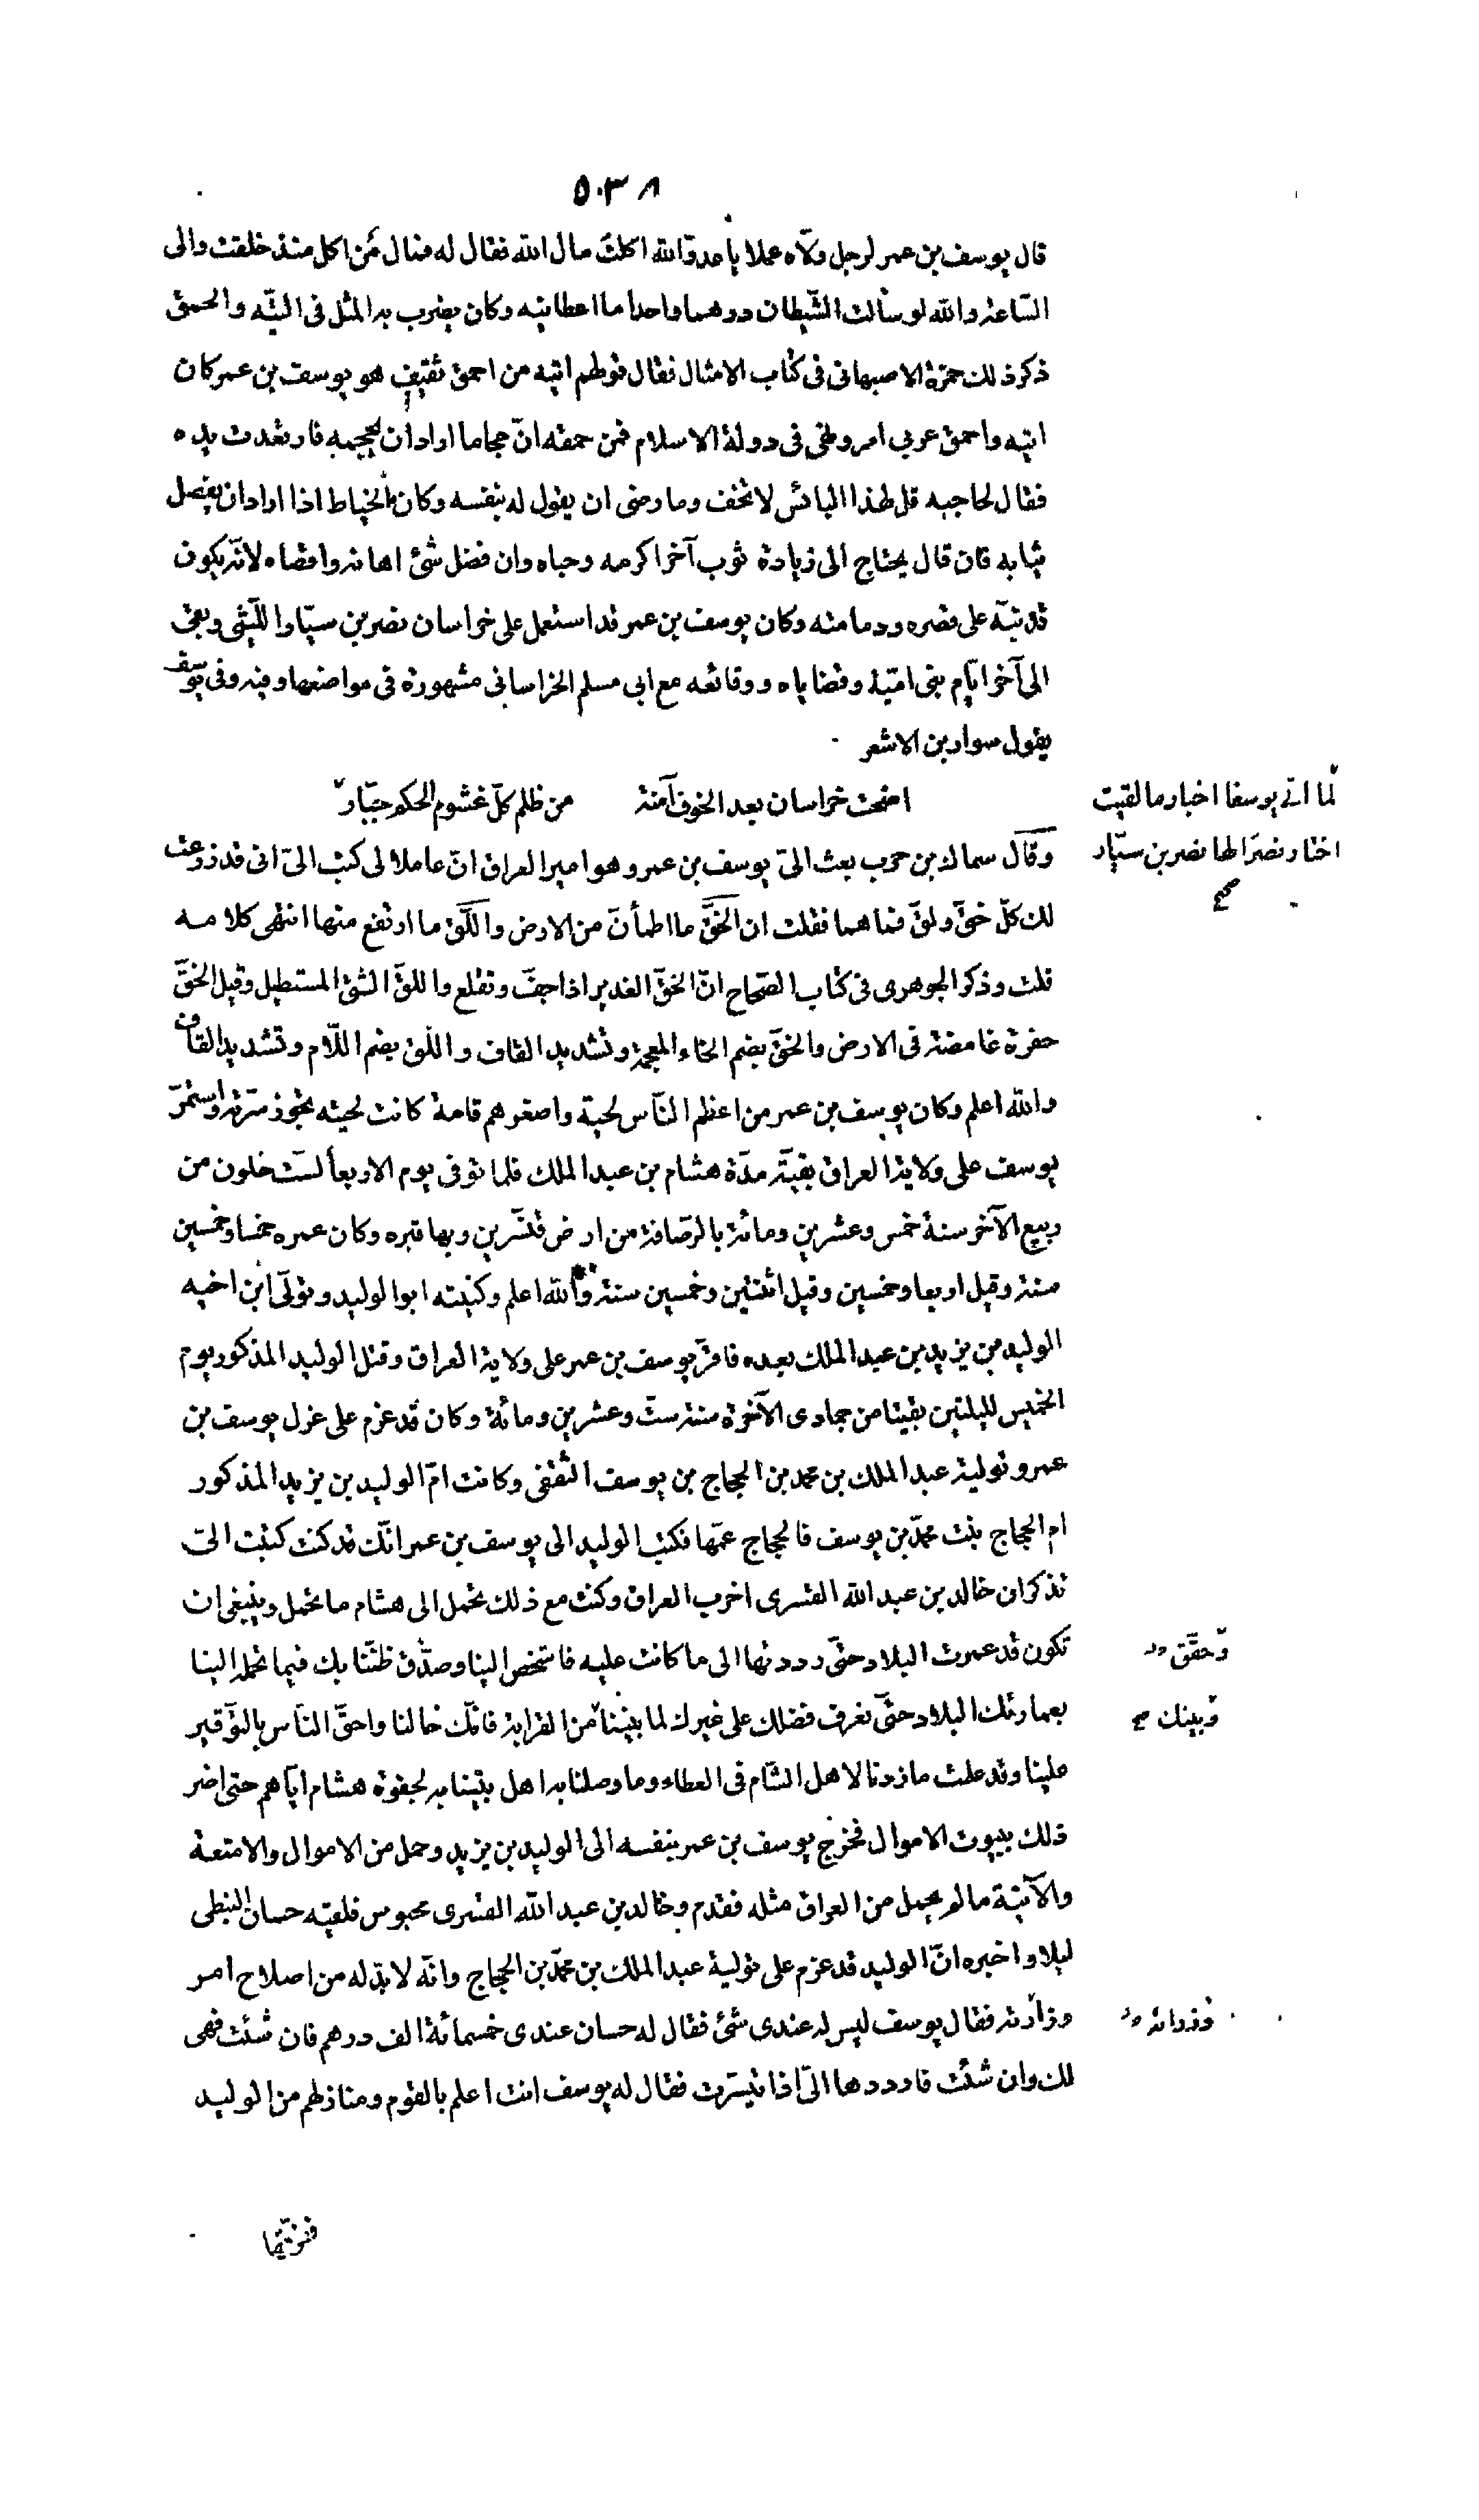 ٥٠٣٨
قال يوسف بن عمر لرجل ولّاه عملا يا عدوّ الله اكلت مال الله فقال له فمال من اكل منذ خلقت والى
السّاعة والله لو سألت الشّيطان درهما واحدا ما اعطانيه وكان يضرب به المثل فى التّيه والحمق
ذكر ذلك حمزة الاصبهانى فى كتاب الامثال فقال قولهم اتيه من احمق ثقيف هو يوسف بن عمر كان
اتيه واحمق عربى امر ونهى فى دولة الاسلام فمن حمقه انّ حجاما اراد ان يحجمه فارتعدت يده
فقال لحاجبه قل لهذا البائس لا تخف وما رضى ان يقول له بنفسه وكان الخياط اذا اراد ان يفصل
ثيابه فان قال يحتاج الى زيادة ثوب آخر اكرمه وحباه وان فضل شئ اهانه واقصاه لانّه يكون
قد نبّه على قصره ودمامته وكان يوسف بن عمر قد استعمل على خراسان نصر بن سيّار اللّيثى وبقى
الى آخر ايّام بنى اميّة وقضاياه ووقائعه مع ابى مسلم الخراسانى مشهورة فى مواضعها وفيه وفى يوسف
يقول سوار بن الاشعر
اضحت خراسان بعد الخوف آمنة من ظلم كلّ غشوم الحكم جبّار
لمّا اتى يوسفا اخبار ما لقيت
اختار نصرا لها نصر بن سيّار
صح
وقال سماك بن حرب بعث الىّ يوسف بن عمر وهو امير العراق انّ عاملا لى كتب الىّ انى قد زرعت
لك كلّ خقّ ولقّ فما هما فقلت ان الخقّ ما اطمأنّ من الارض واللّق ما ارتفع منها انتهى كلامه
قلت وذكر الجوهرى فى كتاب الصّحاح انّ الخقّ الغدير اذا جفّ وتقلع واللقّ الشئ المستطيل وقيل الخقّ
حفرة غامضة فى الارض والخقّ بضم الخاء المعجمة وتشديد القاف واللق بضم اللّام وتشديد القاف
والله اعلم وكان يوسف بن عمر من اعظم النّاس لحية واصغرهم قامة كانت لحيته تجوز سرّته واستمرّ
يوسف على ولاية العراق بقيّة مدّة هشام بن عبد الملك فلما توفى يوم الاربعأ لستّ خلون من
ربيع الآخر سنة خمس وعشرين ومائة بالرّصافة من ارض قنّسرين وبها قبره وكان عمره خمسا وخمسين
سنة وقيل اربعا وخمسين وقيل اثنتين وخمسين سنة والله اعلم وكنيته ابو الوليد وتولّى ابن اخيه
الوليد بن يزيد بن عبد الملك بعده فاقرّ يوسف بن عمر على ولاية العراق وقتل الوليد المذكور يوم
الخميس لليلتين بقيتا من جمادى الآخرة سنة ستّ وعشرين ومائة وكان قد عزم على عزل يوسف بن
عمر وتولية عبد الملك بن محمد بن الحجاج بن يوسف الثقفى وكانت امّ الوليد بن يزيد المذكور
ام الحجاج بنت محمّد بن يوسف فالحجاج عمّها فكتب الوليد الى يوسف بن عمر انّك قد كنت كتبت الىّ
تذكر ان خالد بن عبد الله القسرى اخرب العراق وكنت مع ذلك تحمل الى هشام ما تحمل وينبغى ان
تكون قد عمرت البلاد حتّى رددتها الى ما كانت عليه فاشخص الينا وصدّق ظنّنا بك فيما تحمله الينا
وحقّق
بعمارتك البلاد حتّى نعرف فضلك على غيرك لما بيننا من القرابة فانّك خالنا واحقّ النّاس بالتّوقير
وبينك صح
علينا وقد علمت ما زدنا لاهل الشّام فى العطاء وما وصلنا به اهل بيتنا به لجفوة هشام ايّاهم حتى اضر
ذلك ببيوت الاموال فخرج يوسف بن عمر بنفسه الى الوليد بن يزيد وحمل من الاموال والامتعة
والآنية ما لم يحمل من العراق مثله فقدم وخالد بن عبد الله القسرى محبوس فلقيه حسان النبطى
ليلا واخبره انّ الوليد قد عزم على تولية عبد الملك بن محمّد بن الحجاج وانّه لا بدّ له من اصلاح امر
وزارته فقال يوسف ليس له عندى شئ فقال له حسان عندى خمسمائة الف درهم فان شئت فهى
لك وان شئت فارددها الىّ اذا تيسّرت فقال له يوسف انت اعلم بالقوم ومنازلهم من الوليد